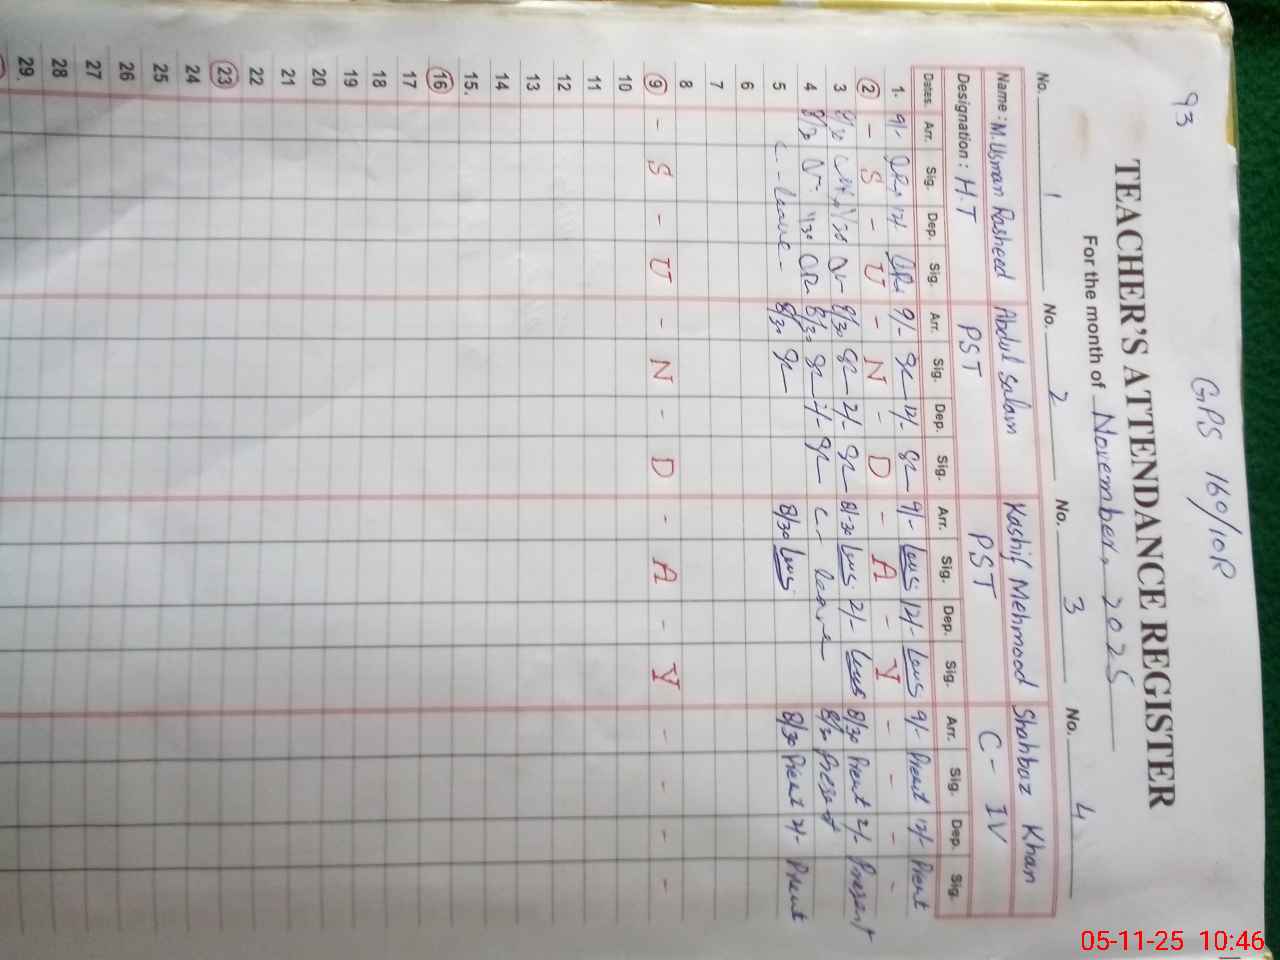 93
GPS 160/10R
TEACHER'S ATTENDANCE REGISTER
For the month of November, 2025
No. 1 No. 2 No. 3 No. 4
Name: M. Usman Rasheed Abdul Salam Kashif Mehmood Shahbaz Khan
Designation: H.T PST PST C-IV
Dates. Arr. Sig. Dep. Sig. Arr. Sig. Dep. Sig. Arr. Sig. Dep. Sig. Arr. Sig. Dep. Sig.
1. 9/- 12/- 9/- 12/- 9/- 12/- 9/- Present 12/- Present
2 - S - U - N - D - A - Y - - - -
3 8/30 8/30 2/- 8/30 2/- 8/30 Present 2/- Present
4 8/30 1/30 8/30 2/- C- leave 8/30 Present
5 C- leave - 8/30 8/30 8/30 Present 2/- Present
6
7
8
9 - S - U - N - D - A - Y - - - -
10
11
12
13
14
15.
16
17
18
19
20
21
22
23
24
25
26
27
28
29.
05-11-25 10:46